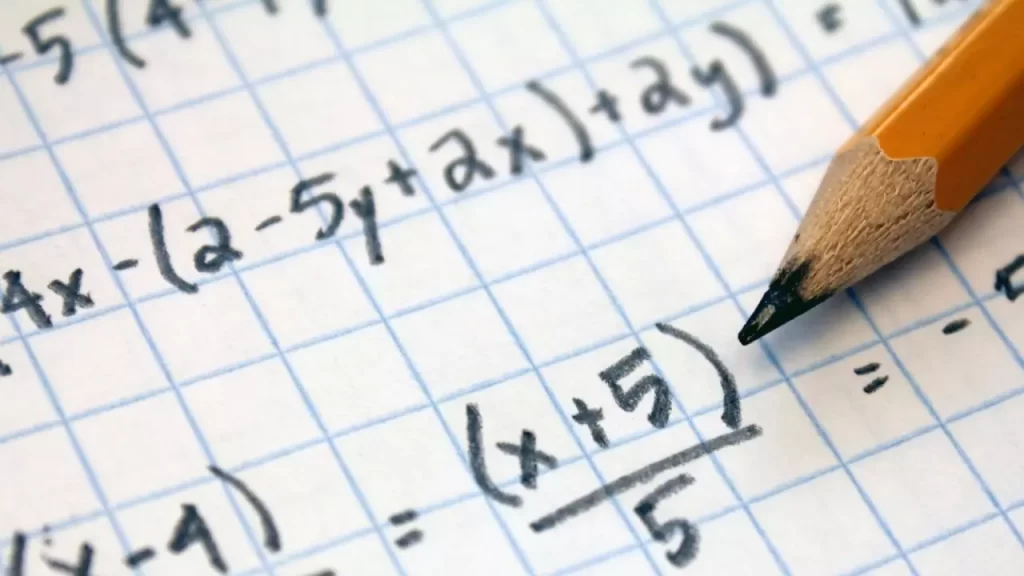 -5(4-
4x-(2-5y+2x)+2y) =
(x-4) = (x+5)/5 = -